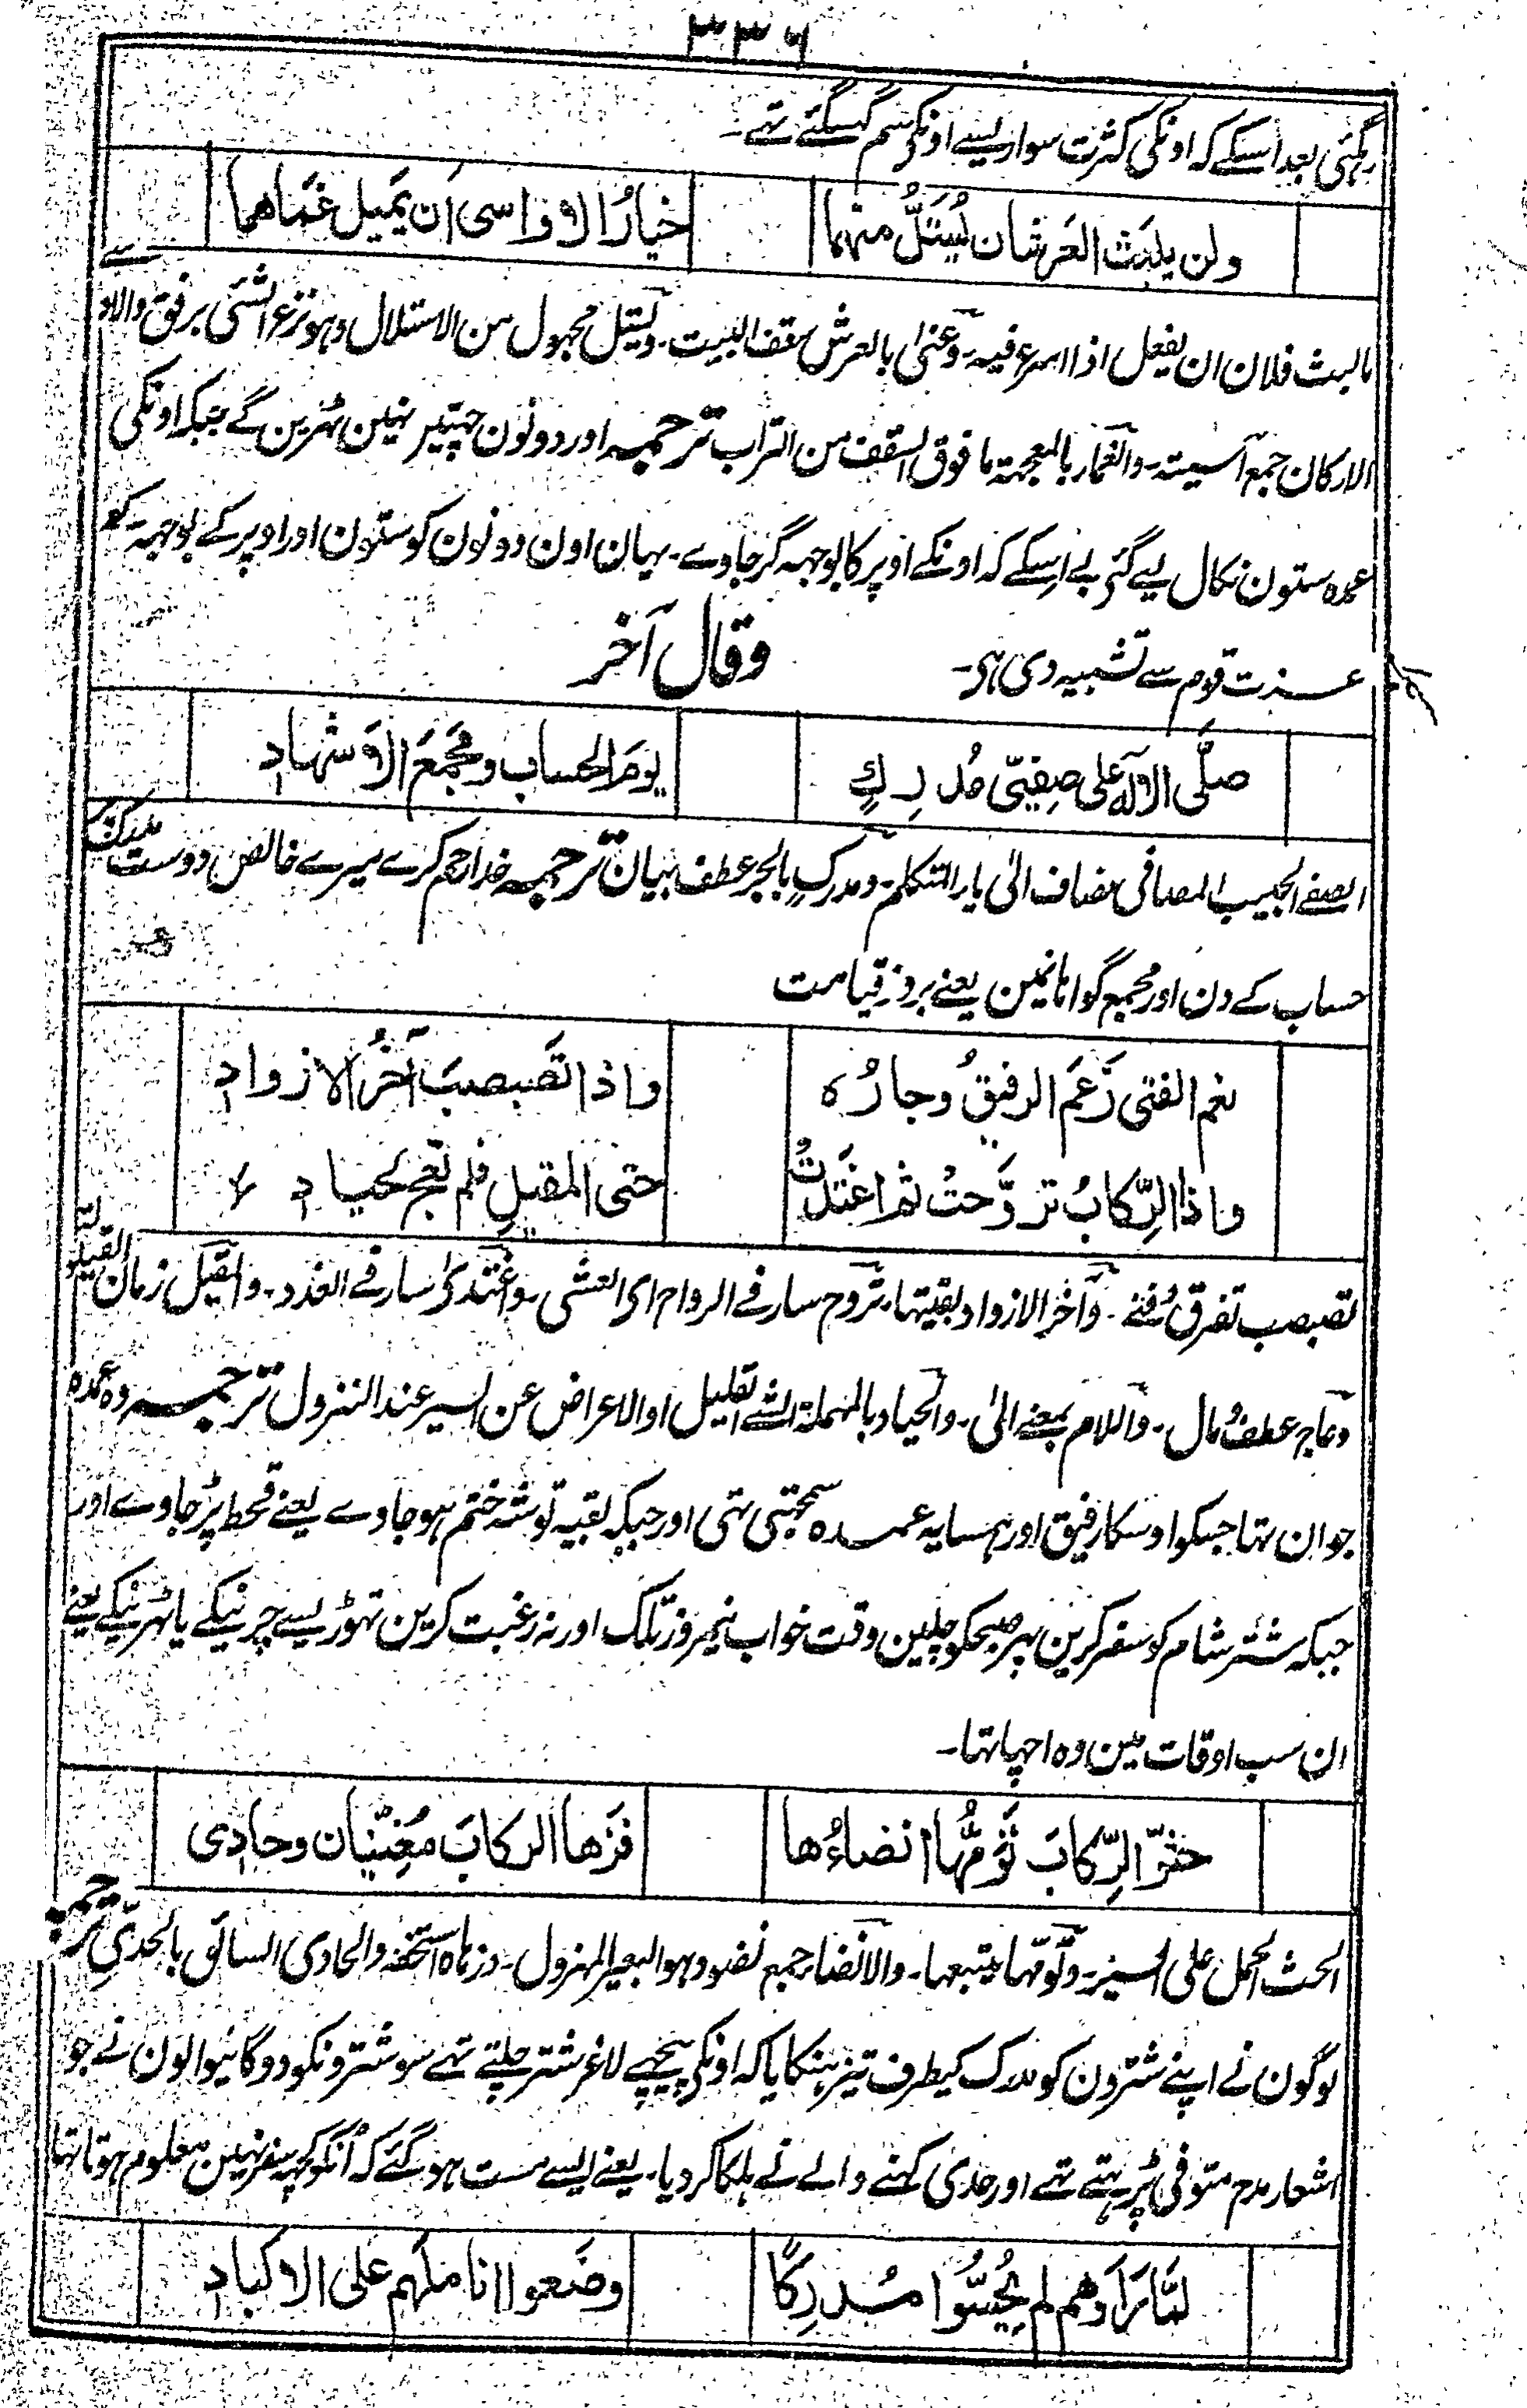 ۳۳۶
رہگئی بعد اسکے کہ اونکی کثرت سواریسے اونکی سم گہسگئے تہے۔
ولن یلبث العَرشان یُستَلُّ منہما خیارُ الاواسی اَن یَمیل غَمَاھما
مالبث فلان ان یفعل اذا اسرع فیہ۔ وعنٰی بالعرش سقف البیت۔ ویستل مجہول من الاستلال وہو نزع الشئی برفق والاواسے
الارکان جمع آسیتہ۔ والغمار بالمعجمۃ ما فوق السقف من التراب ترجمہ اور دونون چہتیر نہین ٹہرین گے جبکہ اونکی
عمدہ ستون نکال لیے گئی بے اسکے کہ اونکے اوپر کا بوجہہ گر جاوے۔ یہان اون دونون کو ستون اور اوپر کے بوجہہ کو
عزت قوم سے تشبیہ دی ہی۔ وقال آخر
صلَّی الالٰہ علی صِفیّی مُدرِکٍ یومَ الحساب ومَجمَعَ الاَشہادِ
الصفے الحبیب المصافی مضاف الی یار المتکلم۔ ومدرکٍ بالجر عطف بیان ترجمہ خدا رحم کرے میرے خالص دوست مدرک پر
حساب کے دن اور مجمع گواہانمین یعنے بروز قیامت
نعم الفتی زَعَمَ الرفیقُ وجارُہ واذا تَصَبصبَ آخرُ الازوادِ
واذا الرِّکابُ تروَّحتُ ثم اغتَدَتُ حتی المقیلِ فلم تعج لحیادِ
تصبصب تفرق وفنے۔ وآخر الازواد بقیتہا۔ تروح سار فے الرواح ای العشی۔ واغتدی سار فے الغدو۔ والمقیل زمان القیلولۃ
وعاج عطف ومال۔ واللام بمعنے الی۔ والحیاد بالمہملۃ الشے القلیل او الاعراض عن السیر عند النزول ترجمہ وہ عمدہ
جوان تہا جسکو اوسکا رفیق اور ہمسایہ عمدہ سمجہتی تہی اور جبکہ بقیہ توشہ ختم ہو جاوے یعنے قحط پڑ جاوے اور
جبکہ شتر شام کو سفر کرین پہر صبحکو چلین وقت خواب نیمروز تلک اور نہ رغبت کرین تہوڑیسے چرنیکے یا ٹہرنیکے یعنے
ان سب اوقات مین وہ اچہا تہا۔
حثّو الرِّکابَ تَؤمُّہا انضاءُھا فزھا الرکابَ مُغنیّان وحادِی
الحث الحمل علی السیر۔ وتؤمّہا یتبعہا۔ والانضار جمع نضو وہو البعیر المہزول۔ وزہاہ استخفہ والحادی السائق بالحدی ترجمہ
لوگون نے اپنے شترون کو مدرک کیطرف تیز ہنکایا کہ اونکی پیچہے لاغر شتر چلتے تہے سو شترونکو دو گانیوالون نے جو
اشعار مدح متوفی پڑہتے تہے اور حدی کہنے والے نے ہلکا کر دیا۔ یعنے ایسے مست ہو گئے کہ اُنکو کچہ سفر نہین معلوم ہوتا تہا
لمّا رَاَوھم لم یُحِسّوا مُدرِکًا وضَعوا انامِلَہم علی الاکبادِ